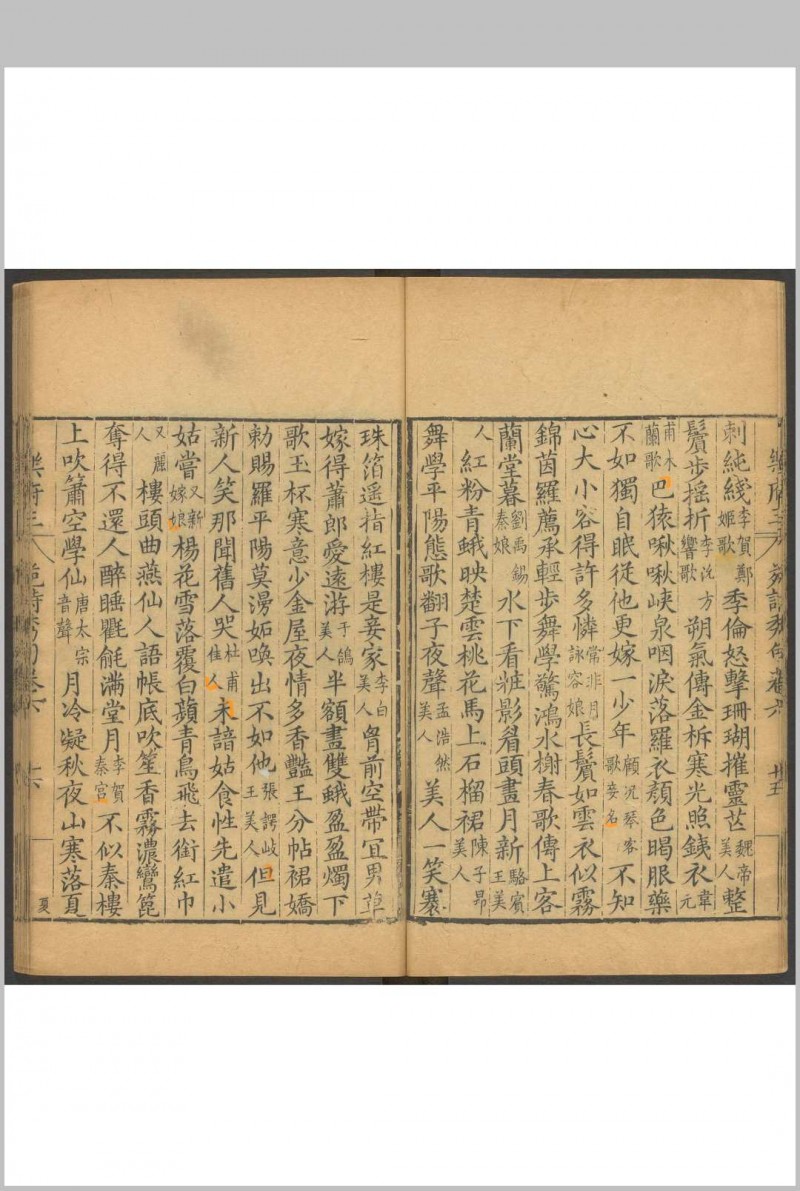 刺純綫李賀鄭姬歌季倫怒擊珊瑚摧靈芸魏帝美人整
鬢步搖折李沇方響歌朔氣傳金柝寒光照鐵衣韋元
甫木蘭歌巴猿啾啾峽泉咽淚落羅衣顏色暍服藥
不如獨自眠從他更嫁一少年顧況琴客歌妾名不知
心大小容得許多憐常非月詠容娘長鬢如雲衣似霧
錦茵羅薦承輕步舞學驚鴻水榭春歌傳上客
蘭堂暮劉禹錫秦娘水下看粧影眉頭畫月新駱賓王美
人紅粉青蛾映楚雲桃花馬上石榴裙陳子昂美人
舞學平陽態歌翻子夜聲孟浩然美人美人一笑褰
珠箔遥指紅樓是妾家李白美人胷前空帶宜男草
嫁得蕭郎愛遠游于鵠美人半額畫雙蛾盈盈燭下
歌玉杯寒意少金屋夜情多香豔王分帖裙嬌
勑賜羅平陽莫漫妬喚出不如他張諤岐王美人但見
新人笑那聞舊人哭杜甫佳人未諳姑食性先遣小
姑嘗又新嫁娘楊花雪落覆白蘋青鳥飛去銜紅巾
又麗人樓頭曲燕仙人語帳底吹笙香霧濃鸞篦
奪得不還人醉睡氍毹滿堂月李賀秦宮不似秦樓
上吹簫空學仙唐太宗音聲月冷凝秋夜山寒落夏